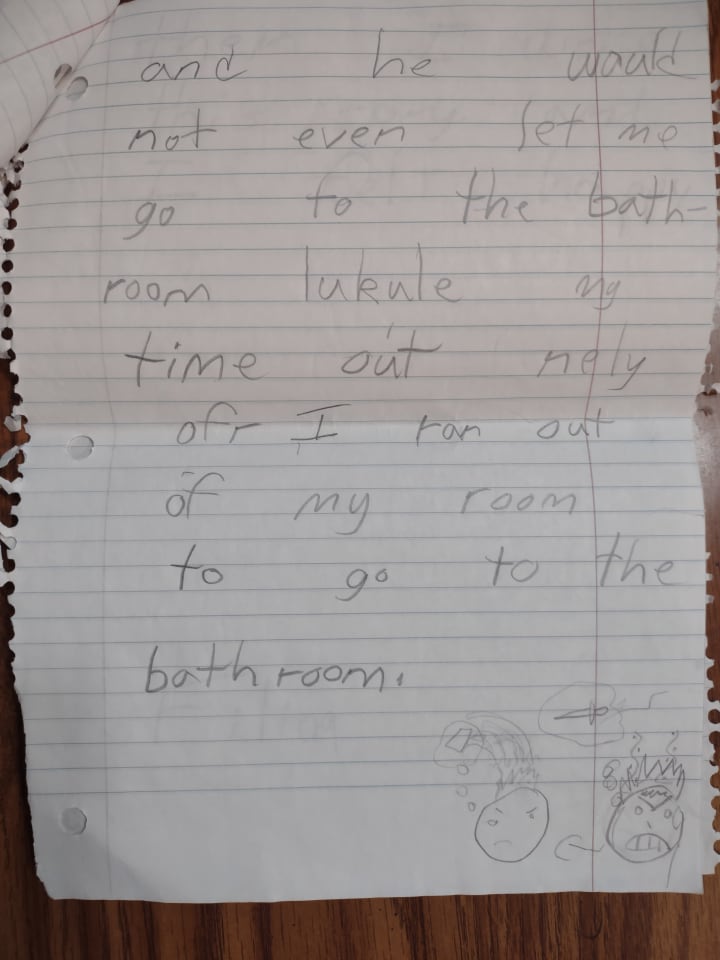 and he would
not even let me
go to the bath-
room lukule my
time out nely
ofr I ran out
of my room
to go to the
bathroom.